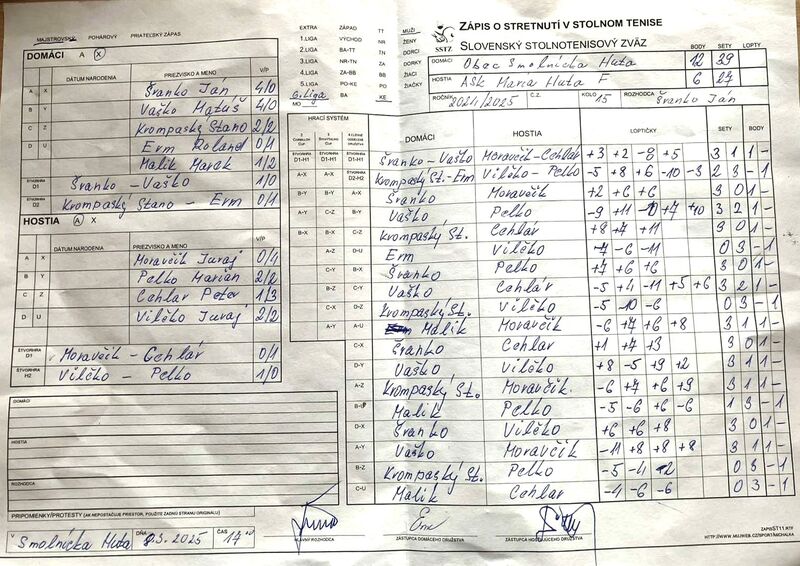 MAJSTROVSKÝ POHÁROVÝ PRIATEĽSKÝ ZÁPAS
EXTRA ZÁPAD TT
1.LIGA VÝCHOD NR
2.LIGA BA-TT TN
3.LIGA NR-TN ZA
4.LIGA ZA-BB BB
5.LIGA PO-KE PO
6.liga BA KE
MO
MUŽI
ŽENY
DORCI
DORKY
ŽIACI
ŽIAČKY
SSTZ
ZÁPIS O STRETNUTÍ V STOLNOM TENISE
SLOVENSKÝ STOLNOTENISOVÝ ZVÄZ
BODY SETY LOPTY
DOMÁCI Obec Smolnícka Huta 12 39
HOSTIA AŠK Mária Huta F 6 27
ROČNÍK 2024/2025 Č.Z. KOLO 15 ROZHODCA Švanko Ján
DOMÁCI A X
DÁTUM NARODENIA PRIEZVISKO A MENO V/P
A X Švanko Ján 4/0
B Y Vaško Matúš 4/0
C Z Krompaský Stano 2/2
D U Erm Roland 0/1
Malik Marek 1/2
ŠTVORHRA D1 Švanko - Vaško 1/0
ŠTVORHRA D2 Krompaský Stano - Erm 0/1
HOSTIA A X
DÁTUM NARODENIA PRIEZVISKO A MENO V/P
A X Moravčík Juraj 0/4
B Y Pelko Marián 2/2
C Z Cehlár Peter 1/3
D U Vilčko Juraj 2/2
ŠTVORHRA D1 Moravčík - Cehlár 0/1
ŠTVORHRA H2 Vilčko - Pelko 1/0
HRACÍ SYSTÉM
DOMÁCI HOSTIA LOPTIČKY SETY BODY
Švanko - Vaško Moravčík-Cehlár +3 +2 -9 +5 3 1 1 -
Krompaský St.-Erm Vilčko - Pelko -5 +8 +6 -10 -3 2 3 - 1
Švanko Moravčík +2 +6 +6 3 0 1 -
Vaško Pelko -9 +11 -10 +7 +10 3 2 1 -
Krompaský St. Cehlár +8 +7 +11 3 0 1 -
Erm Vilčko -7 -6 -11 0 3 - 1
Švanko Pelko +7 +6 +6 3 0 1 -
Vaško Cehlár -5 +4 -11 +5 +6 3 2 1 -
Krompaský St. Vilčko -5 -10 -6 0 3 - 1
Malik Moravčík -6 +7 +6 +8 3 1 1 -
Švanko Cehlár +1 +7 +3 3 0 1 -
Vaško Vilčko +8 -5 +9 +2 3 1 1 -
Krompaský St. Moravčík -6 +7 +6 +9 3 1 1 -
Malik Pelko -5 -6 +6 -6 1 3 - 1
Švanko Vilčko +6 +6 +8 3 0 1 -
Vaško Moravčík -11 +8 +8 +8 3 1 1 -
Krompaský St. Pelko -5 -4 -2 0 3 - 1
Malik Cehlár -4 -6 -6 0 3 - 1
DOMÁCI
HOSTIA
ROZHODCA
PRIPOMIENKY/PROTESTY (AK NEPOSTAČUJE PRIESTOR, POUŽITE ZADNÚ STRANU ORIGINÁLU)
V Smolnícka Huta DŇA 8.3.2025 ČAS 17 00
HLAVNÝ ROZHODCA ZÁSTUPCA DOMÁCEHO DRUŽSTVA ZÁSTUPCA HOSŤUJÚCEHO DRUŽSTVA
ZAPISST11.RTF
HTTP://WWW.MUJWEB.CZ/SPORT/MICHALKA